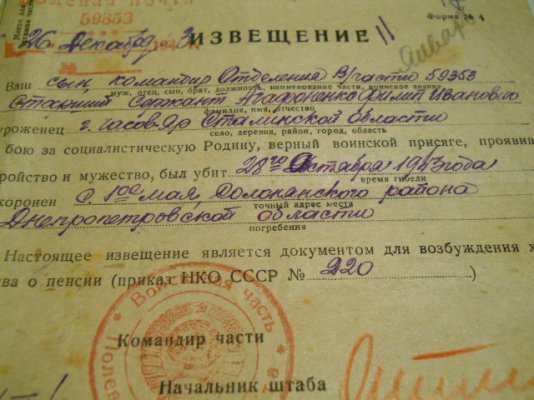 Полевая почта Форма № 4
59353
26 Декабря 1943 ИЗВЕЩЕНИЕ 11
Январ
Ваш сын, командир Отделения В/части 59353
муж, отец, сын, брат, должность, наименование части, воинское звание
Старший Сержант Агафоненко Филип Иванович
фамилия, имя, отчество
уроженец г. Часов-Яр Сталинской области
село, деревня, район, город, область
бою за социалистическую Родину, верный воинской присяге, проявив
ройство и мужество, был убит 28го Октября 1943 года
время гибели
хоронен с. 1ое мая, Солонянского района
точный адрес места
Днепропетровской области
погребения
Настоящее извещение является документом для возбуждения х
ва о пенсии (приказ НКО СССР № 220)
Командир части
Воинская часть
Полев
Начальник штаба